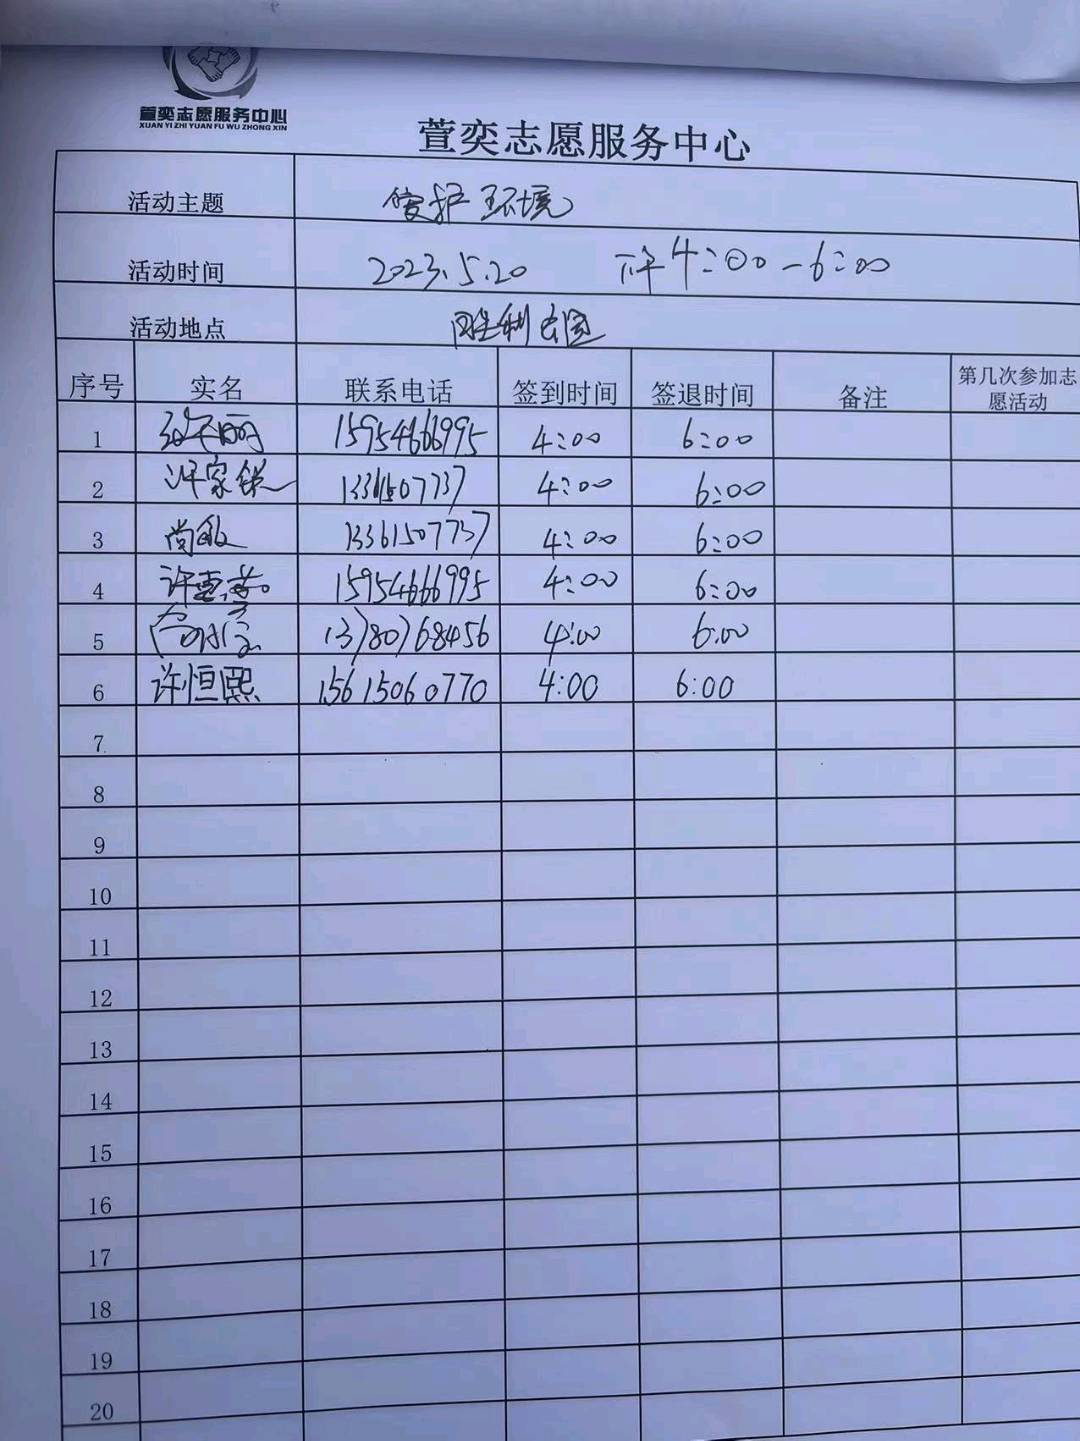 萱奕志愿服务中心
XUAN YI ZHI YUAN FU WU ZHONG XIN
萱奕志愿服务中心
活动主题 爱护环境
活动时间 2023.5.20 下午4:00-6:00
活动地点 胜利公园
序号 实名 联系电话 签到时间 签退时间 备注 第几次参加志愿活动
1 15954666995 4:00 6:00
2 许家铭 13361507737 4:00 6:00
3 尚敏 13361507737 4:00 6:00
4 15954666995 4:00 6:00
5 13780768456 4:00 6:00
6 许恒熙 15615060770 4:00 6:00
7
8
9
10
11
12
13
14
15
16
17
18
19
20